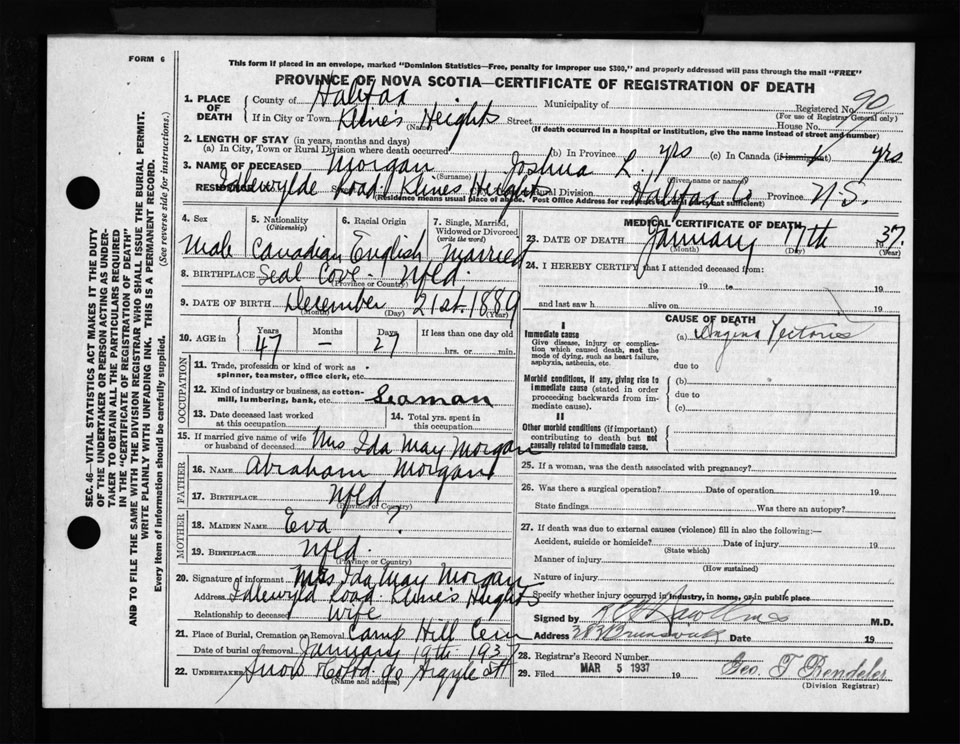 FORM 6
This form if placed in an envelope, marked "Dominion Statistics—Free, penalty for improper use $300," and properly addressed will pass through the mail "FREE"
PROVINCE OF NOVA SCOTIA—CERTIFICATE OF REGISTRATION OF DEATH
1. PLACE OF DEATH
County of Halifax Municipality of Registered No. 90
(For use of Registrar General only)
If in City or Town Klines Heights Street House No.
(Name) (If death occurred in a hospital or institution, give the name instead of street and number)
2. LENGTH OF STAY (in years, months and days)
(a) In City, Town or Rural Division where death occurred (b) In Province yrs (c) In Canada (if immigrant) yrs
3. NAME OF DECEASED Morgan Joshua L.
(Surname) (Given name or names)
RESIDENCE Idlewylde Road Klines Height Rural Division Halifax Co Province N.S.
(Residence means usual place of abode. Post Office Address for residents in rural parts not sufficient)
4. Sex 5. Nationality (Citizenship) 6. Racial Origin 7. Single, Married, Widowed or Divorced (write the word)
Male Canadian English Married
8. BIRTHPLACE Seal Cove Nfld.
(Province or Country)
9. DATE OF BIRTH December 21st 1889
(Month) (Day) (Year)
10. AGE in Years Months Days If less than one day old
47 – 27 hrs. or min.
OCCUPATION
11. Trade, profession or kind of work as spinner, teamster, office clerk, etc.
12. Kind of industry or business, as cotton-mill, lumbering, bank, etc. Seaman
13. Date deceased last worked at this occupation
14. Total yrs. spent in this occupation
15. If married give name of wife or husband of deceased Mrs Ida May Morgan
FATHER
16. NAME Abraham Morgan
17. BIRTHPLACE Nfld
(Province or Country)
MOTHER
18. MAIDEN NAME Eva ?
19. BIRTHPLACE Nfld.
(Province or Country)
20. Signature of informant Mrs Ida May Morgan
Address Idlewyld Road. Kline's Heights
Relationship to deceased Wife
21. Place of Burial, Cremation or Removal Camp Hill Cem
Date of burial or removal January 19th 1937
22. UNDERTAKER Snow 90 Argyle St
(Name and address)
MEDICAL CERTIFICATE OF DEATH
23. DATE OF DEATH January 17th 1937.
(Month) (Day) (Year)
24. I HEREBY CERTIFY that I attended deceased from:
19 to 19
and last saw h alive on 19
CAUSE OF DEATH
I
Immediate cause
Give disease, injury or complication which caused death, not the mode of dying, such as heart failure, asphyxia, asthenia, etc.
(a) Angina Pectoris
due to
Morbid conditions, if any, giving rise to immediate cause (stated in order proceeding backwards from immediate cause).
(b)
due to
(c)
II
Other morbid conditions (if important) contributing to death but not causally related to immediate cause.
25. If a woman, was the death associated with pregnancy?
26. Was there a surgical operation? Date of operation 19
State findings Was there an autopsy?
27. If death was due to external causes (violence) fill in also the following:—
Accident, suicide or homicide? Date of injury 19
(State which)
Manner of injury
(How sustained)
Nature of injury
Specify whether injury occurred in industry, in home, or in public place
Signed by M.D.
Address 383 Brunswick Date 19
28. Registrar's Record Number
29. Filed MAR 5 1937 19 Geo. T Bendeler
(Division Registrar)
SEC. 46—VITAL STATISTICS ACT MAKES IT THE DUTY
OF THE UNDERTAKER OR PERSON ACTING AS UNDER-
TAKER TO OBTAIN ALL THE PARTICULARS REQUIRED
IN THE "CERTIFICATE OF REGISTRATION OF DEATH"
AND TO FILE THE SAME WITH THE DIVISION REGISTRAR WHO SHALL ISSUE THE BURIAL PERMIT.
WRITE PLAINLY WITH UNFADING INK. THIS IS A PERMANENT RECORD.
Every item of information should be carefully supplied. (See reverse side for instructions.)